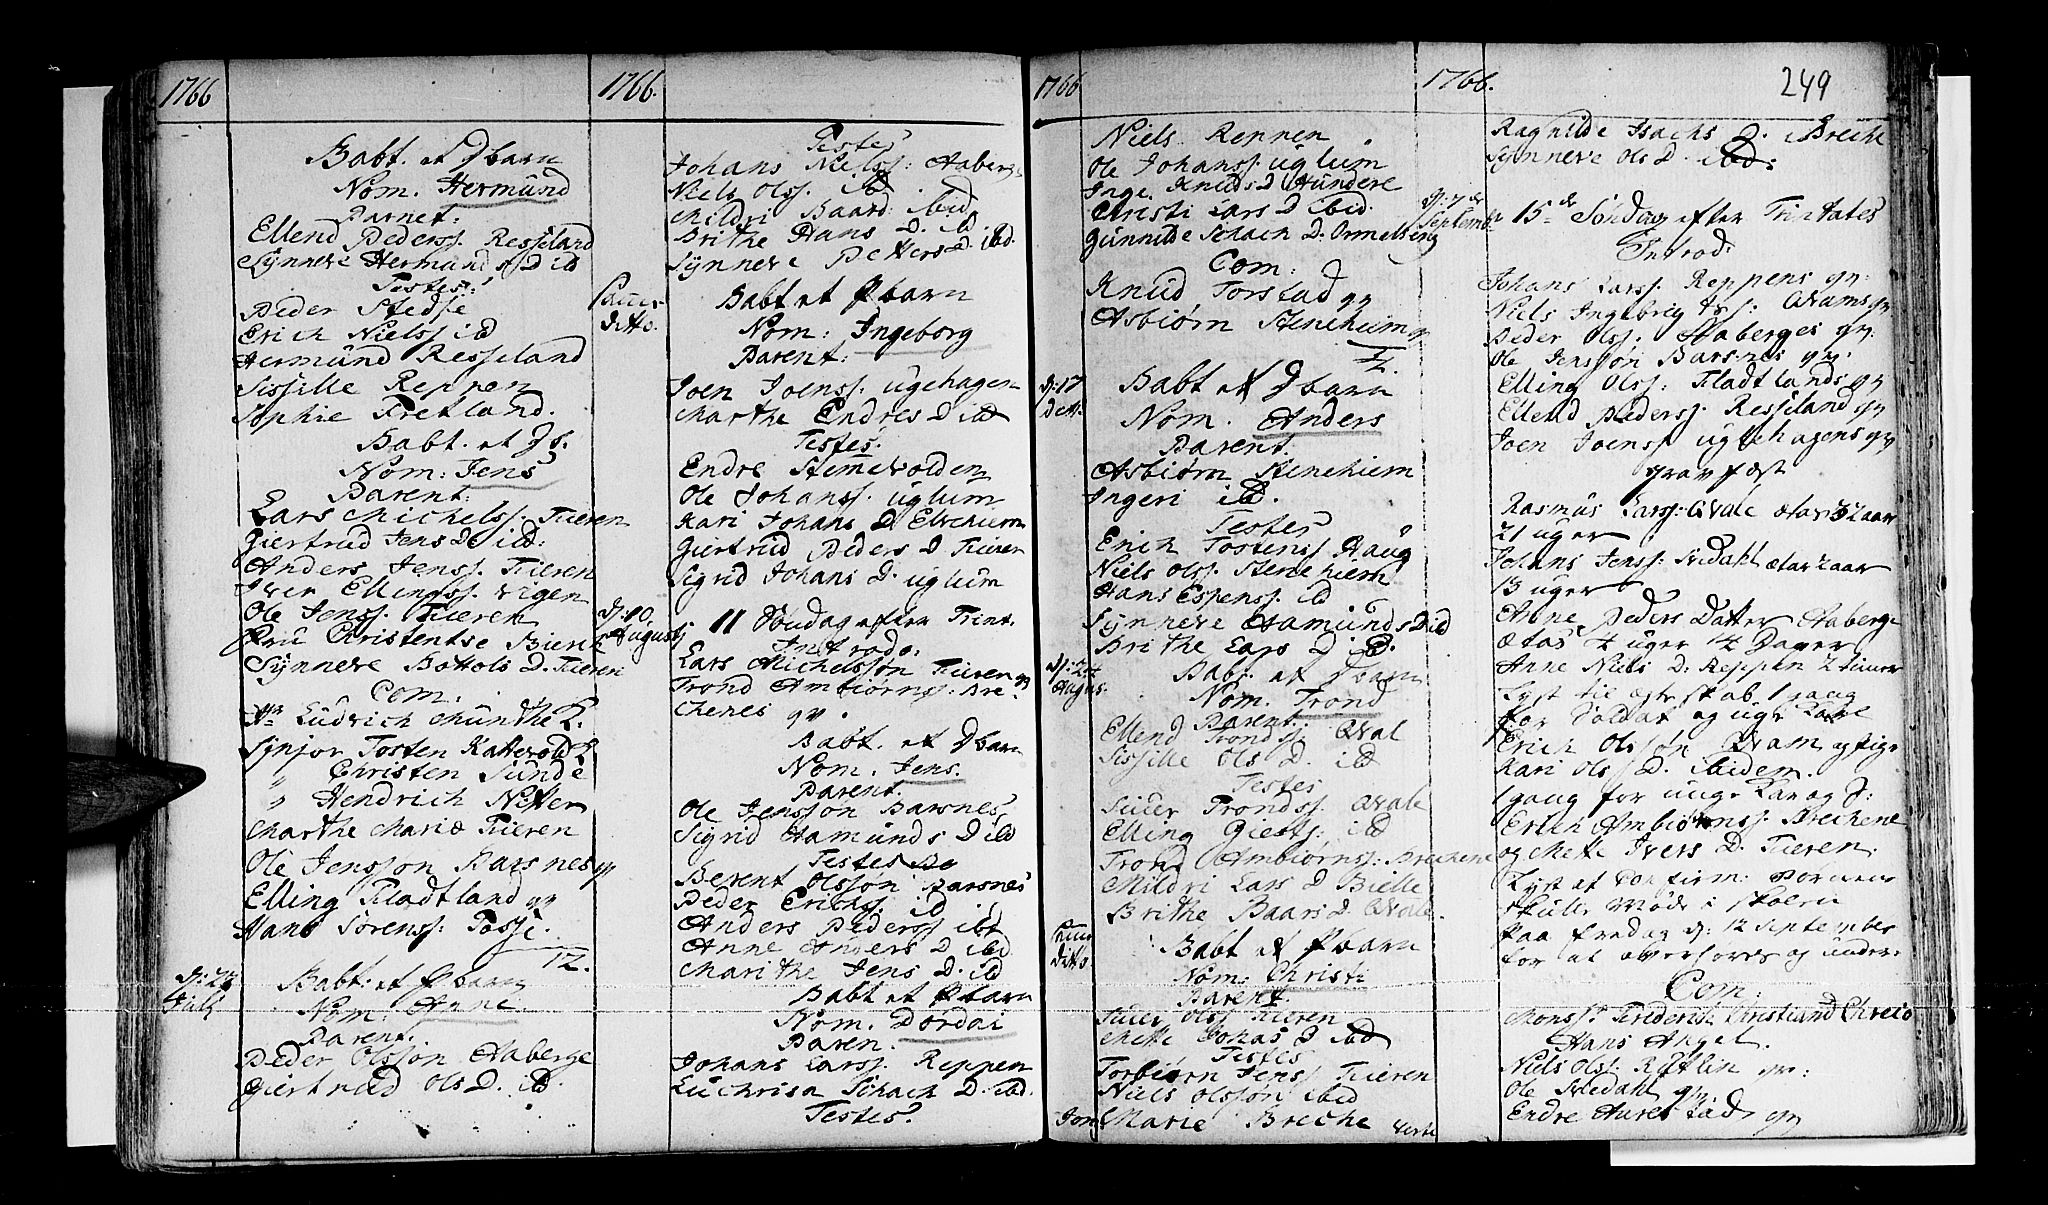 1766
Babt. et Dbarn
Nom. Hermund
Parnet:
Ellend Peders. Resseland
Synneve Hermunds D ibd
Testes:
Peder Stedje
Erich Niels. ibd
Hermund Resseland
Sissille Reppen
Sophie Fretland.
Babt. et Ds.
Nom: Jens
Parent:
Lars Michelss: Tieren
Giertrud Jens D. ibd:
Anders Jenss. Tieren
Iver Ellingss. Vigen
Ole Jenss. Tieren
Fru Christentse Bierk
Synneve Bottols D. Tieren
Com.
Hr. Ludvich Munthe
Sinjor Tosten
" Christen Sunde
" Hendrich Nitter
Marthe Marie Tieren
Ole Jensson Barsnes qv
Elling Fladtland qv
Hans Sörenss: Fosse.
12.
d: 27
July
Babt: et Pbarn
Nom: Anne
Parent.
Peder Olsson Aaberge
Giertrud Ols D. ibd.
1766.
Testes
Johans Nielss: Aaberge
Niels Olss. ibd
Mildri Baard: ibid
Brithe Hans D. ibd.
Synneve Petters D. ibd.
ditto.
Babt et Pbarn
Nom: Ingeborg
Parent:
Joen Joenss. Ugehagen
Marthe Endres D ibd
Testes.
Endre Stemevolden
Ole Johanss. Uglum
Kari Johans D. Elvehiem
Giertrud Peders D Tieren
Sigrid Johans D. Uglum
d: 10.
Augusti
11 Söndag efter Trint.
Introd.
Lars Michelssön Tieren qv
Trond Ambiörnss: Bre-
chenes qv.
Babt. et Dbarn
Nom. Jens.
Parent.
Ole Jenssön Barsnes
Sigrid Hamunds D ibd
Testes
Berent Olsson Barsnes
Peder Erichs. ibd
Anders Pederss ibd
Anne Anders D ibd
Marithe Jens D. ibd
Babt et Pbarn
Nom. Dordai
Paren.
Johans Larss. Reppen
Luchrisa Schach D. ibd.
Testes.
1766
Niels Reppen
Ole Johanss: Uglum
Inge Knuds D Hundere
Christi Lars D ibid.
Gunnilde Schach D. Ormelseng
Com:
Knud Torstad qv
Asbiörn Steneheim qv
d: 17
ditt.
Babt et Dbarn
Nom. Anders
Parent.
Asbiörn Stenehiem
Ingeri ibd.
Testes
Erich Tostenss Haug
Niels Olss. Stenehiem
Hans Espenss. ibd
Synneve Hamunds D ibd
Brithe Lars D ibd.
d: 24
Augus.
Babt. et Dbarn
Nom. Trond
Parent.
Ellend Tronds. Qval
Sissille Ols D. ibd
Testes
Siuer Trondss. Qvale
Elling Giests: ibd
Trond Ambiörns: Brechene
Mildri Lars D Bielle
Brithe Baars D. Qvale.
ditto
Babt et Pbarn
Nom: Christi
Parent.
Siuer Olss Tieren
Mette Johans D ibd
Testes
Torbiörn Jenss Tieren
Niels Olssön ibid
Marie Breche
1766.
249
Ragnilde Isachs D. Breche
Synneve Ols D. ibd:
d: 7de
Septemb:
15de Söndag efter Trintates
Introd:
Johans Larss. Reppens qv:
Niels Ingebrigtss: Qvams qv
Peder Olss. Aaberges qv:
Ole Jensson Barsnes qv.
Elling Olss: Fladtlands qv
Ellend Pederss. Resseland qv
Joen Joenss Uglehagens qv
gravfæst
Rasmus Larss: Qvale ætas 32 aar
21 uger
Johans Jenss: Svedahl ætas 2 aar
13 uger
Anne Peders Datter Aaberge
ætas 4 uger 14 Dager
Anne Niels D: Reppen 2 timer
Lyst til ægteskab 1 gang
for Soldat og ugr Karle
Erich Olssön Qvam og pige
Kari Ols D. ibidem.
1 gang for unge Kar og P:
Erich Ambiörnss. Brechene
og Mette Ivers D. Tieren.
Lyst at Confirm: Börnene
skulle Möde i Skolen
paa Fredag d: 12 Septembr
for at overhöres og under-
Com:
Monsr. Frederich Christian Chreio
Hans Angel.
Niels Olss. Rutlin qv:
Ole Svedahl qv
Endre Aurestad qv